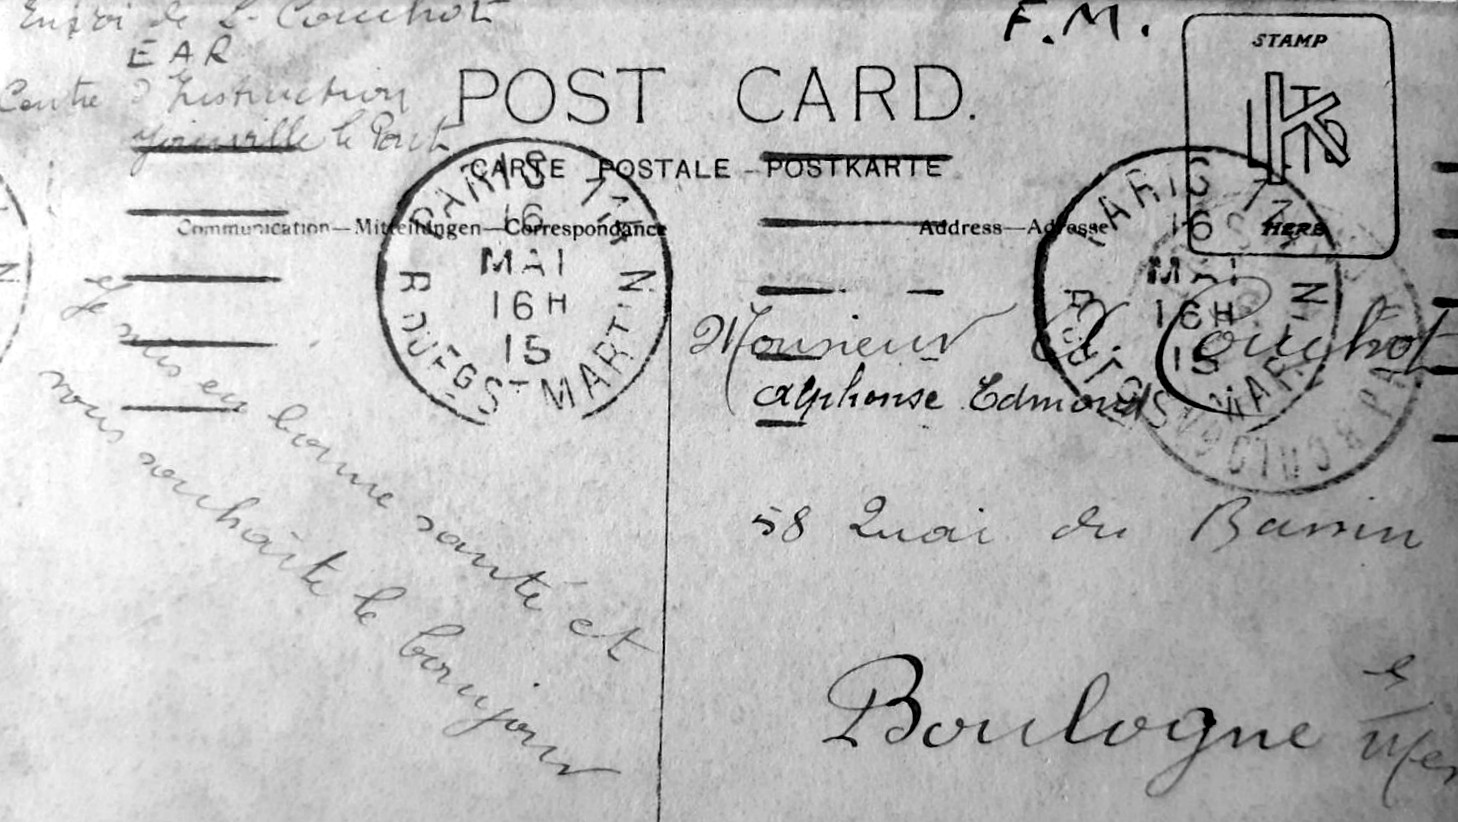 Envoi de L. Couchot
EAR
Centre d'Instruction
Joinville le Pont
F.M.
POST CARD.
CARTE POSTALE - POSTKARTE
Communication—Mitteilungen—Correspondance
Address—Adresse
STAMP
HERE
PARIS
16
MAI
16H
15
R DU FG ST MARTIN
PARIS
16
MAI
16H
15
MARTIN
Je suis en bonne santé et
vous souhaite le boujour
Monsieur Couchot
Alphonse Edmond
58 Quai du Bassin
Boulogne s/Mer